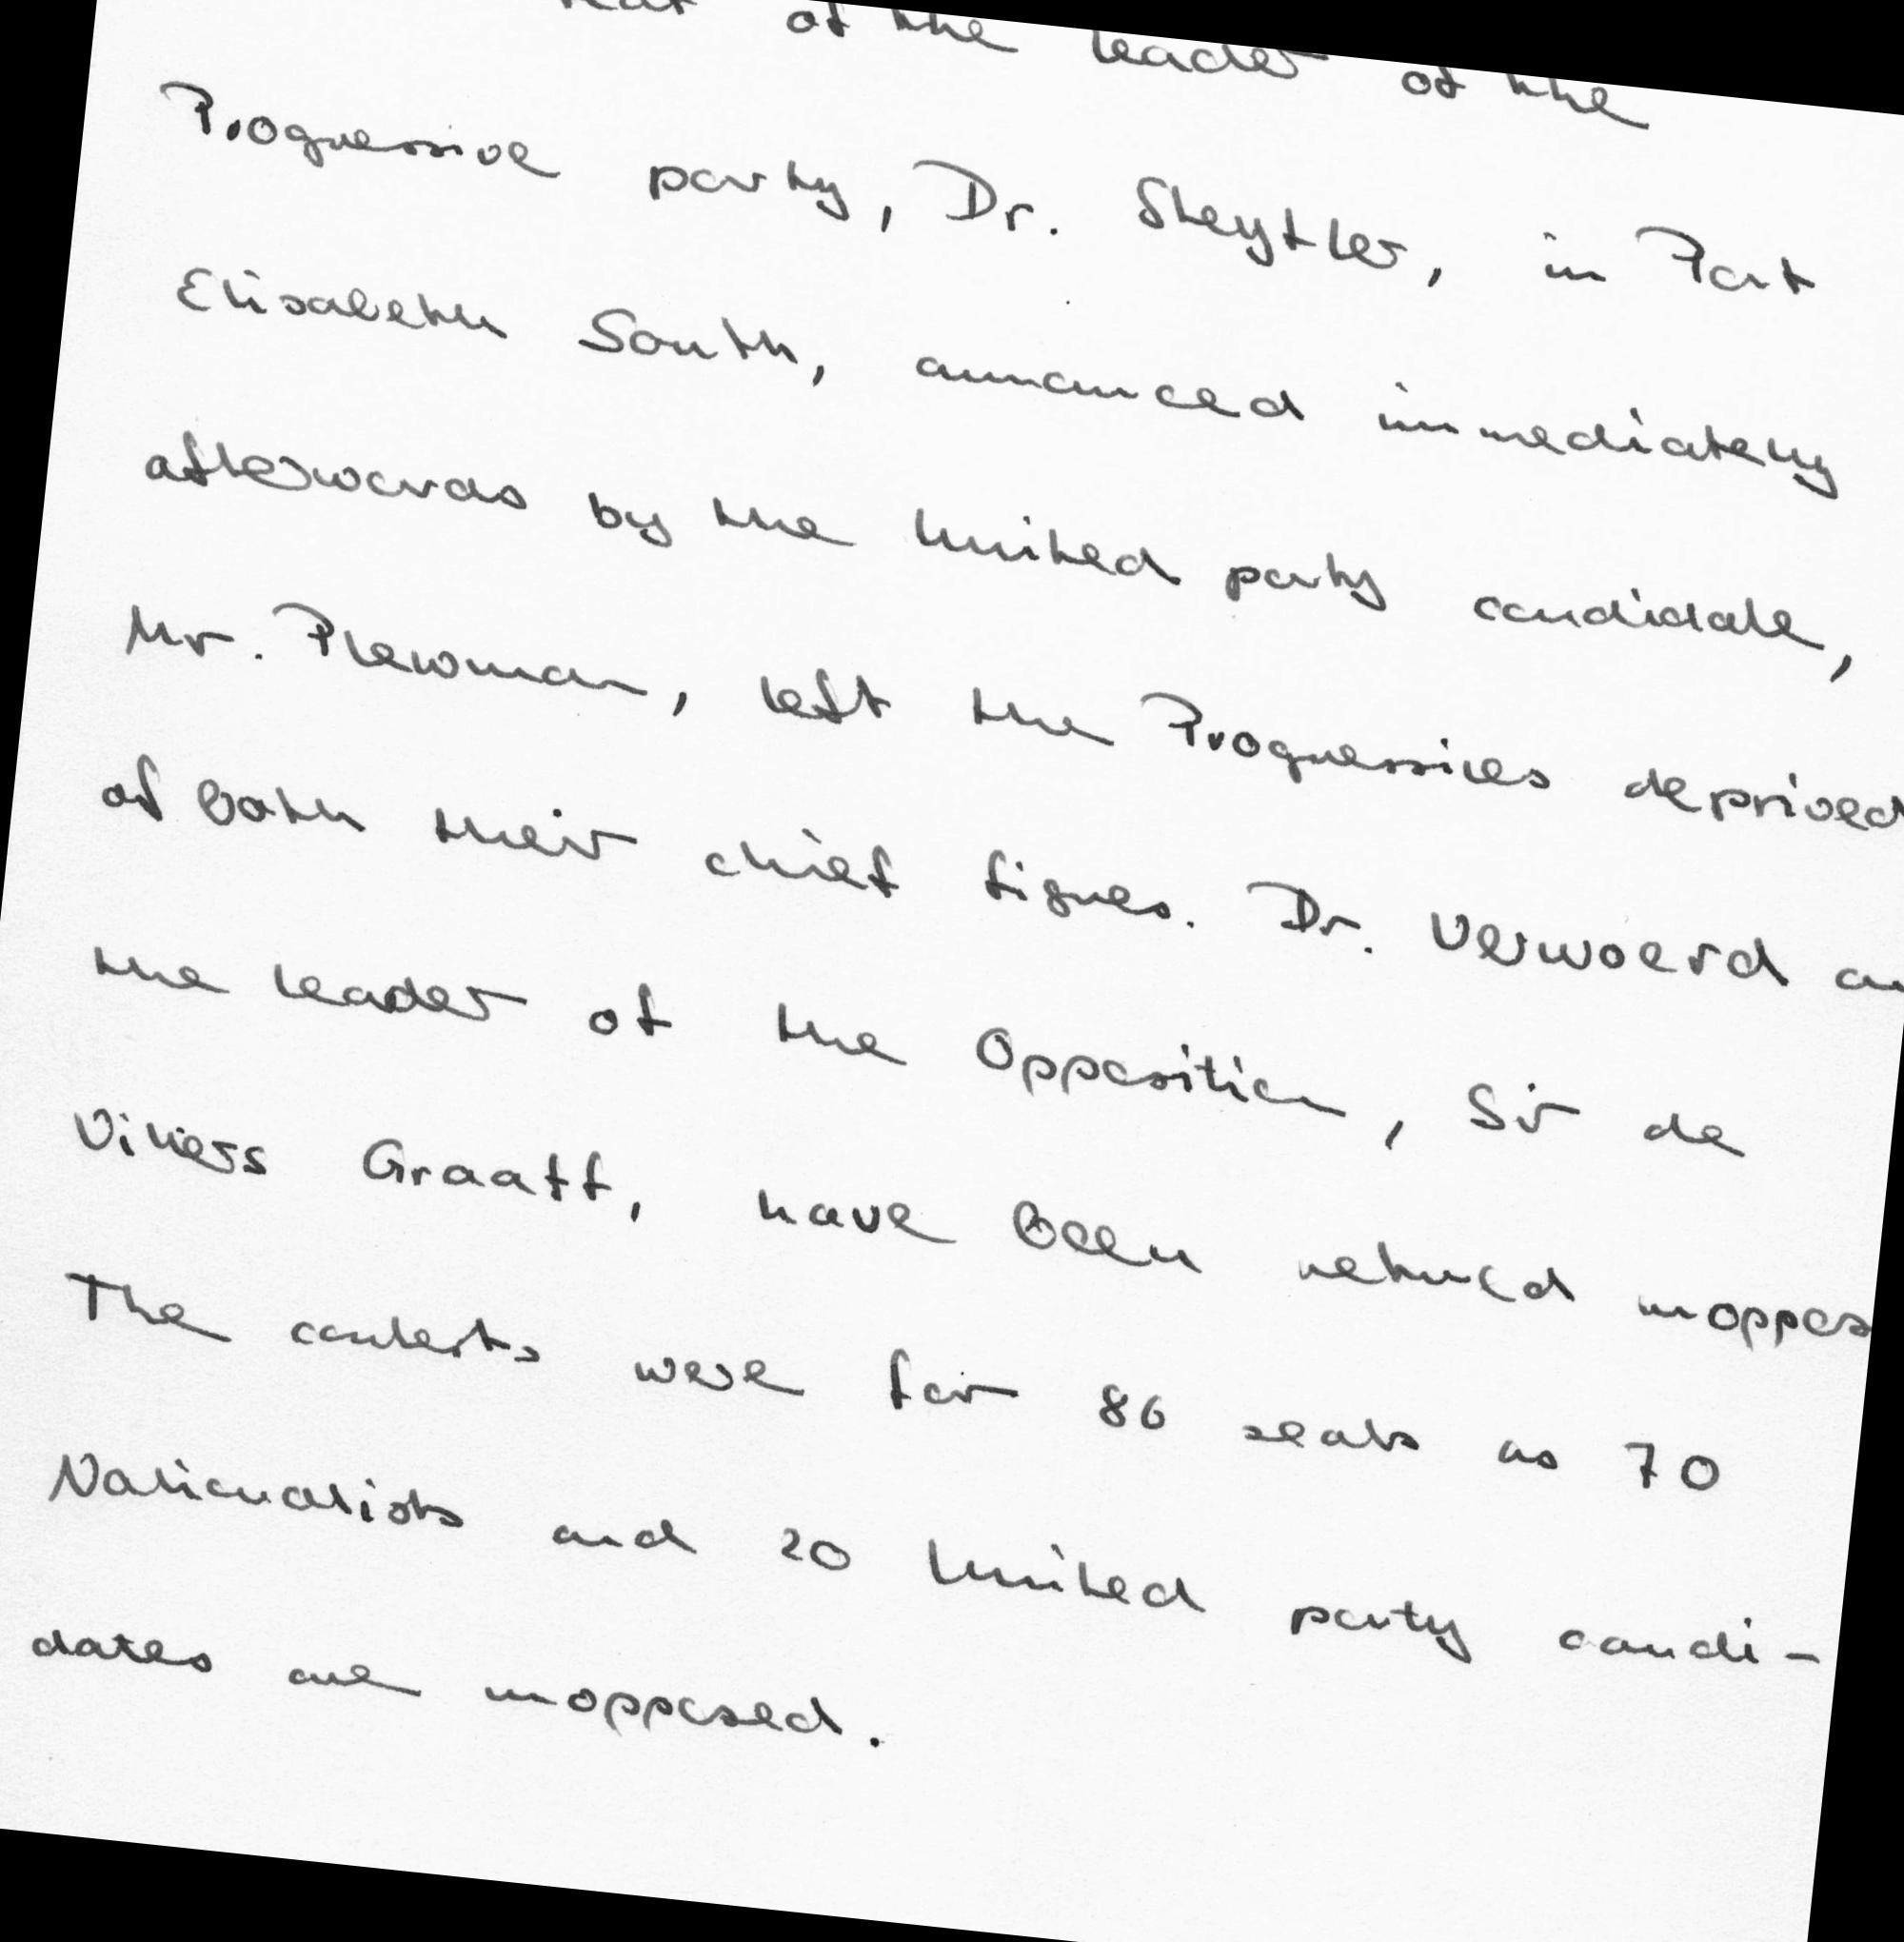 of the leader of the
Progressive party, Dr. Steytler, in Port
Elisabeth South, announced immediately
afterwards by the United party candidate,
Mr. Plewman, left the Progressives deprived
of both their chief figures. Dr. Verwoerd an
the leader of the Opposition, Sir de
Viliers Graaff, have been returned unoppos
The contests were for 86 seats as 70
Nationalists and 20 United party candi-
dates are unopposed.